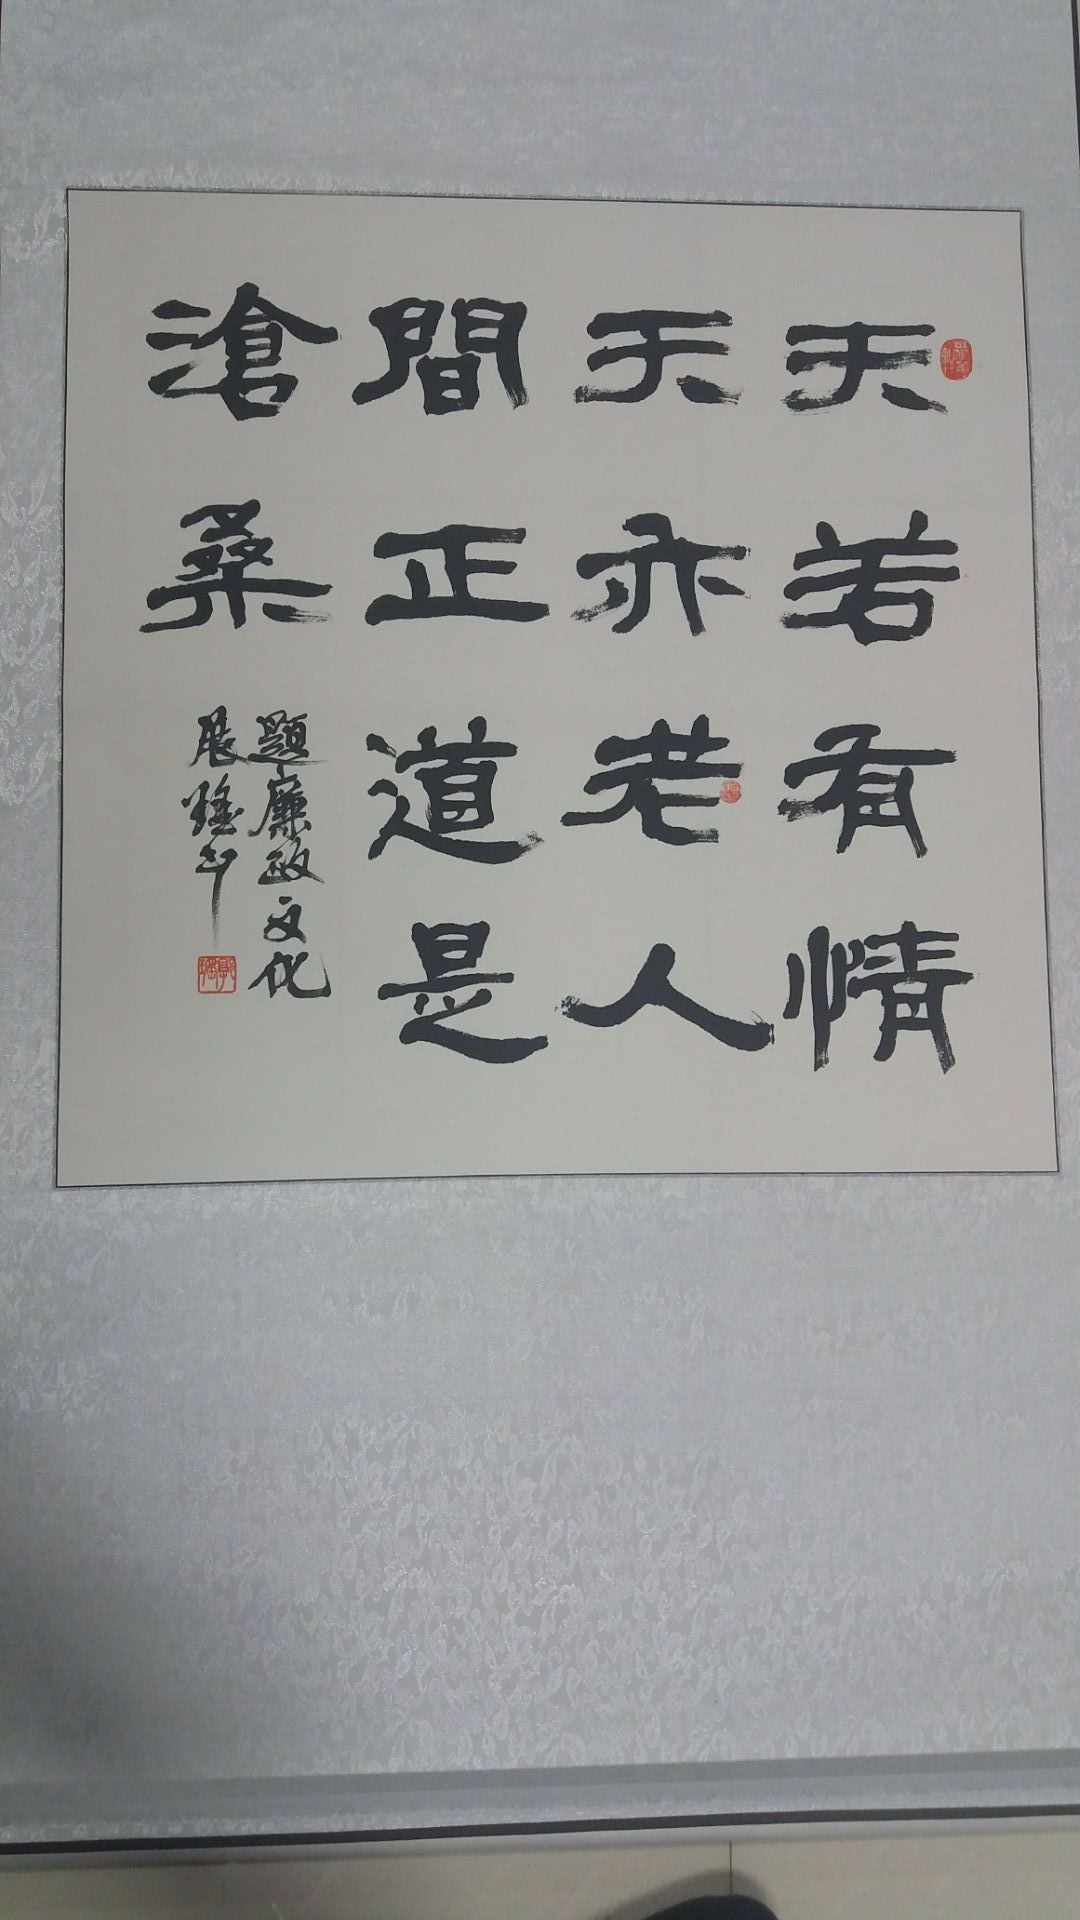 天若有情
天亦老人
間正道是
滄桑
題廉政文化
展